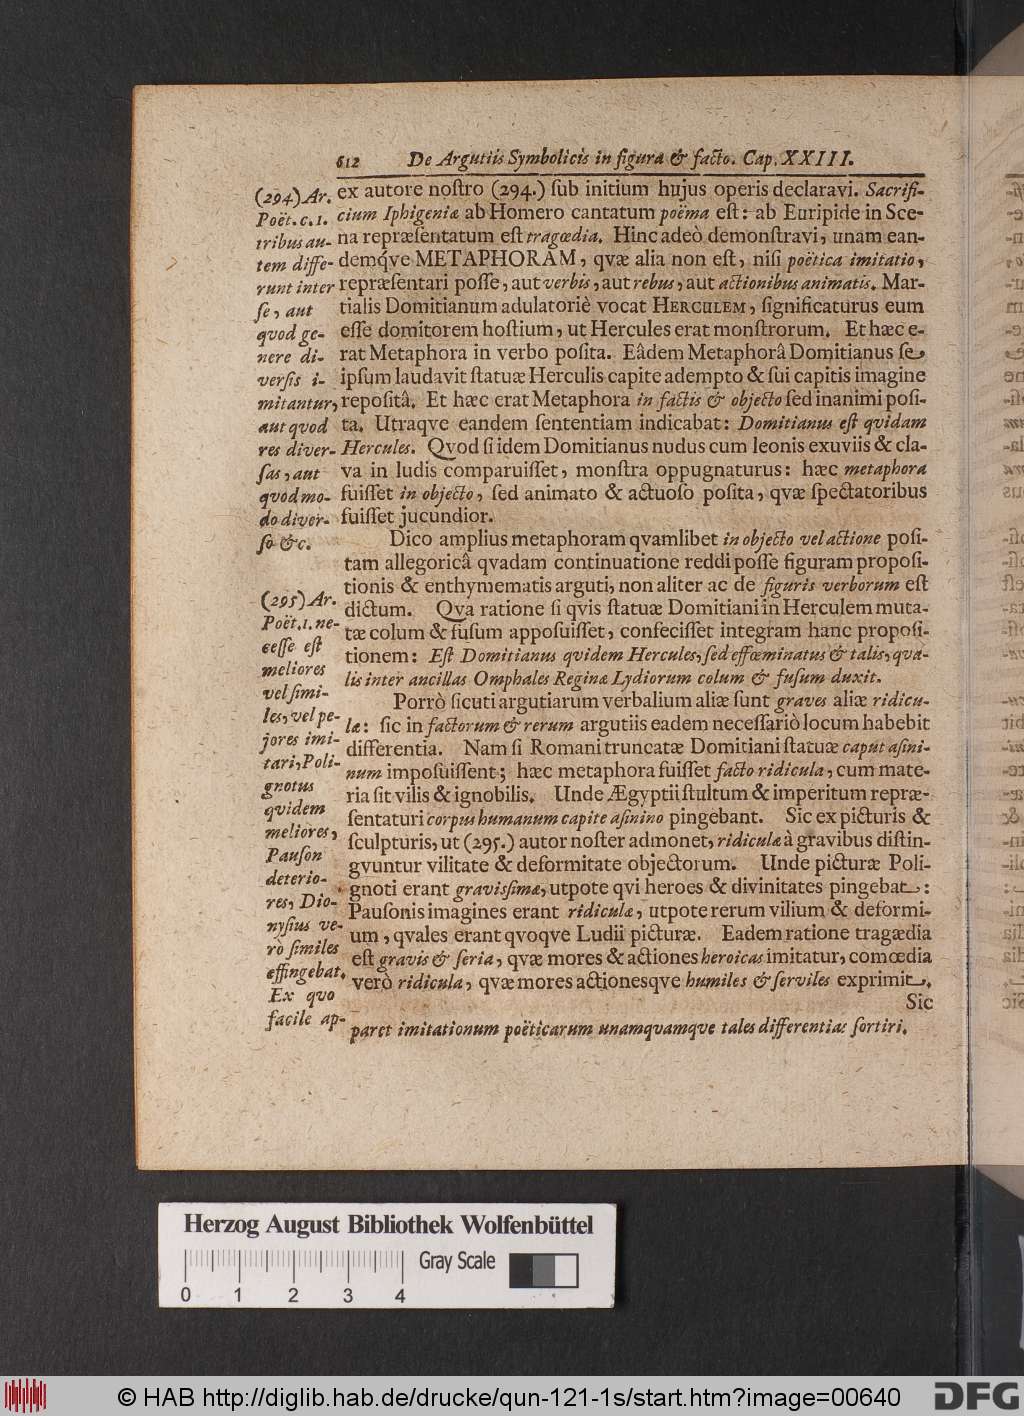 612 De Argutiis Symbolicis in figura & facto. Cap. XXIII.
ex autore noſtro (294.) ſub initium hujus operis declaravi. Sacrifi-
cium Iphigeniæ ab Homero cantatum poëma eſt: ab Euripide in Sce-
na repræſentatum eſt tragœdia. Hinc adeò demonſtravi, unam ean-
demqve METAPHORAM, qvæ alia non eſt, niſi poëtica imitatio,
repræſentari poſſe, aut verbis, aut rebus, aut actionibus animatis. Mar-
tialis Domitianum adulatoriè vocat HERCULEM, ſignificaturus eum
eſſe domitorem hoſtium, ut Hercules erat monſtrorum. Et hæc e-
rat Metaphora in verbo poſita. Eâdem Metaphorâ Domitianus ſe
ipſum laudavit ſtatuæ Herculis capite adempto & ſui capitis imagine
repoſitâ. Et hæc erat Metaphora in factis & objecto ſed inanimi poſi-
ta. Utraqve eandem ſententiam indicabat: Domitianus eſt qvidam
Hercules. Qvod ſi idem Domitianus nudus cum leonis exuviis & cla-
va in ludis comparuiſſet, monſtra oppugnaturus: hæc metaphora
fuiſſet in objecto, ſed animato & actuoſo poſita, qvæ ſpectatoribus
fuiſſet jucundior.
Dico amplius metaphoram qvamlibet in objecto vel actione poſi-
tam allegoricâ qvadam continuatione reddi poſſe figuram propoſi-
tionis & enthymematis arguti, non aliter ac de figuris verborum eſt
dictum. Qva ratione ſi qvis ſtatuæ Domitiani in Herculem muta-
tæ colum & fuſum appoſuiſſet, confeciſſet integram hanc propoſi-
tionem: Eſt Domitianus qvidem Hercules, ſed effœminatus & talis, qva-
lis inter ancillas Omphales Reginæ Lydiorum colum & fuſum duxit.
Porrò ſicuti argutiarum verbalium aliæ ſunt graves aliæ ridicu-
læ: ſic in factorum & rerum argutiis eadem neceſſariò locum habebit
differentia. Nam ſi Romani truncatæ Domitiani ſtatuæ caput aſini-
num impoſuiſſent; hæc metaphora fuiſſet facto ridicula, cum mate-
ria ſit vilis & ignobilis. Unde Ægyptii ſtultum & imperitum repræ-
ſentaturi corpus humanum capite aſinino pingebant. Sic ex picturis &
ſculpturis, ut (295.) autor noſter admonet, ridiculæ à gravibus diſtin-
gvuntur vilitate & deformitate objectorum. Unde picturæ Poli-
gnoti erant gravisſimæ, utpote qvi heroes & divinitates pingebat:
Pauſonis imagines erant ridiculæ, utpote rerum vilium & deformi-
um, qvales erant qvoqve Ludii picturæ. Eadem ratione tragædia
eſt gravis & ſeria, qvæ mores & actiones heroicas imitatur, comœdia
verò ridicula, qvæ mores actionesqve humiles & ſerviles exprimit.
Sic
(294) Ar.
Poët. c. 1.
tribus au-
tem diffe-
runt inter
ſe, aut
quod ge-
nere di-
verſis i-
mitantur,
aut quod
res diver-
ſas, aut
quod mo-
do diver-
ſo &c.
(295) Ar.
Poët. 1. ne-
ceſſe eſt
meliores
vel ſimi-
les, vel pe-
jores imi-
tari, Poli-
gnotus
quidem
meliores,
Pauſon
deterio-
res, Dio-
nyſius ve-
rò ſimiles
effingebat.
Ex quo
facile ap-
paret imitationum poëticarum unamquamque tales differentias ſortiri.
Herzog August Bibliothek Wolfenbüttel
Gray Scale
0 1 2 3 4
© HAB http://diglib.hab.de/drucke/qun-121-1s/start.htm?image=00640
DFG